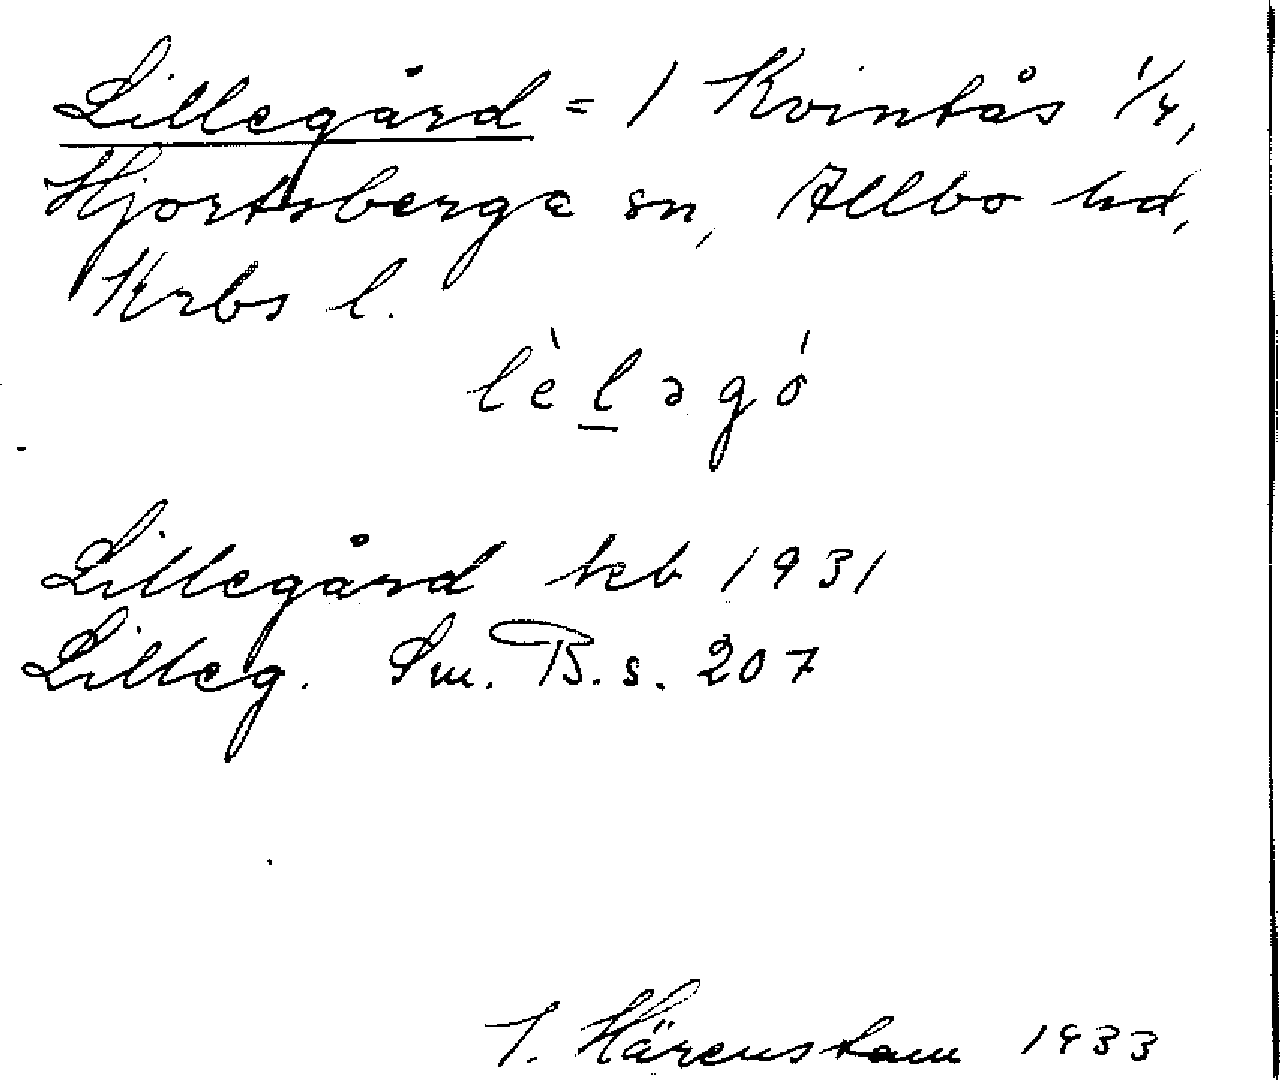 Lillegård = 1 Kvintås 1/4,
Hjortsberga sn, Allbo hd,
Krbs l.
lèləgó
Lillegård teb 1931
Lilleg. Sm. B. s. 207
Härenstam 1933